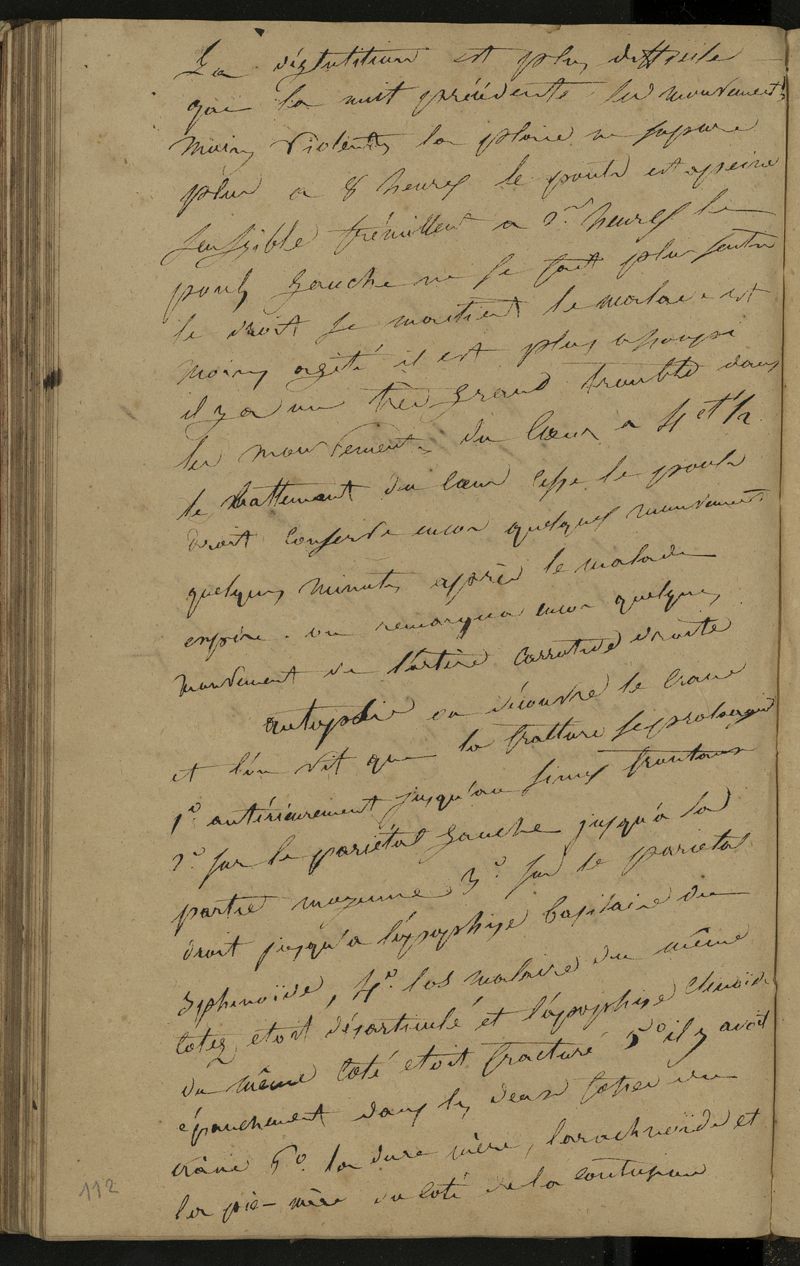 La déglutition est plus difficile
que la nuit précédente les mouvements
moins violents, la plaie ne supure
plus a 8 heures le pouls est apeine
sensible frémillent a 2 heures le
pouls gauche ne se fait plus sentir
le droit se maintient le malade est
moins agité il est plus assoupi
il y a un tres grand trouble dans
les mouvements du Cœur a 4 et 1/2
le battement du cœur cesse le pouls
droit conserve encor quelques mouvements
quelques minutes après le malade
expire. on remarqua encor quelques
mouvement de l'artère carrotide droite
autopsie on découvre le crane
et l'on vit que la fracture se prolongeoit
1º antérieurement jusqu'au sinus frontaux
2º sur le pariétal gauche jusqu'a la
partie moyenne 3º sur le parietal
droit jusqu'a l'apophise basilaire du
sphenoïde, 4º l'os malaire du même
cotez etoit désarticulé et l'apophise clinoïde
du même coté etoit fracturé 5º il y avoit
épanchement dans les deux fosses du
crâne 6º la dure mère, l'arachnoïde et
la pie-mère du coté de la contusion
112